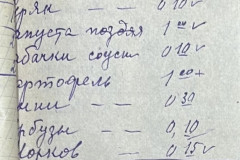 рян — — 0 10 ✓
пуста поздяя 1 00 ✓
бачки соуси 0 10 ✓
артофель 1 00 +
ыни — — 0 30
рбузы — 0,10 ✓
орков — 0,15 ✓